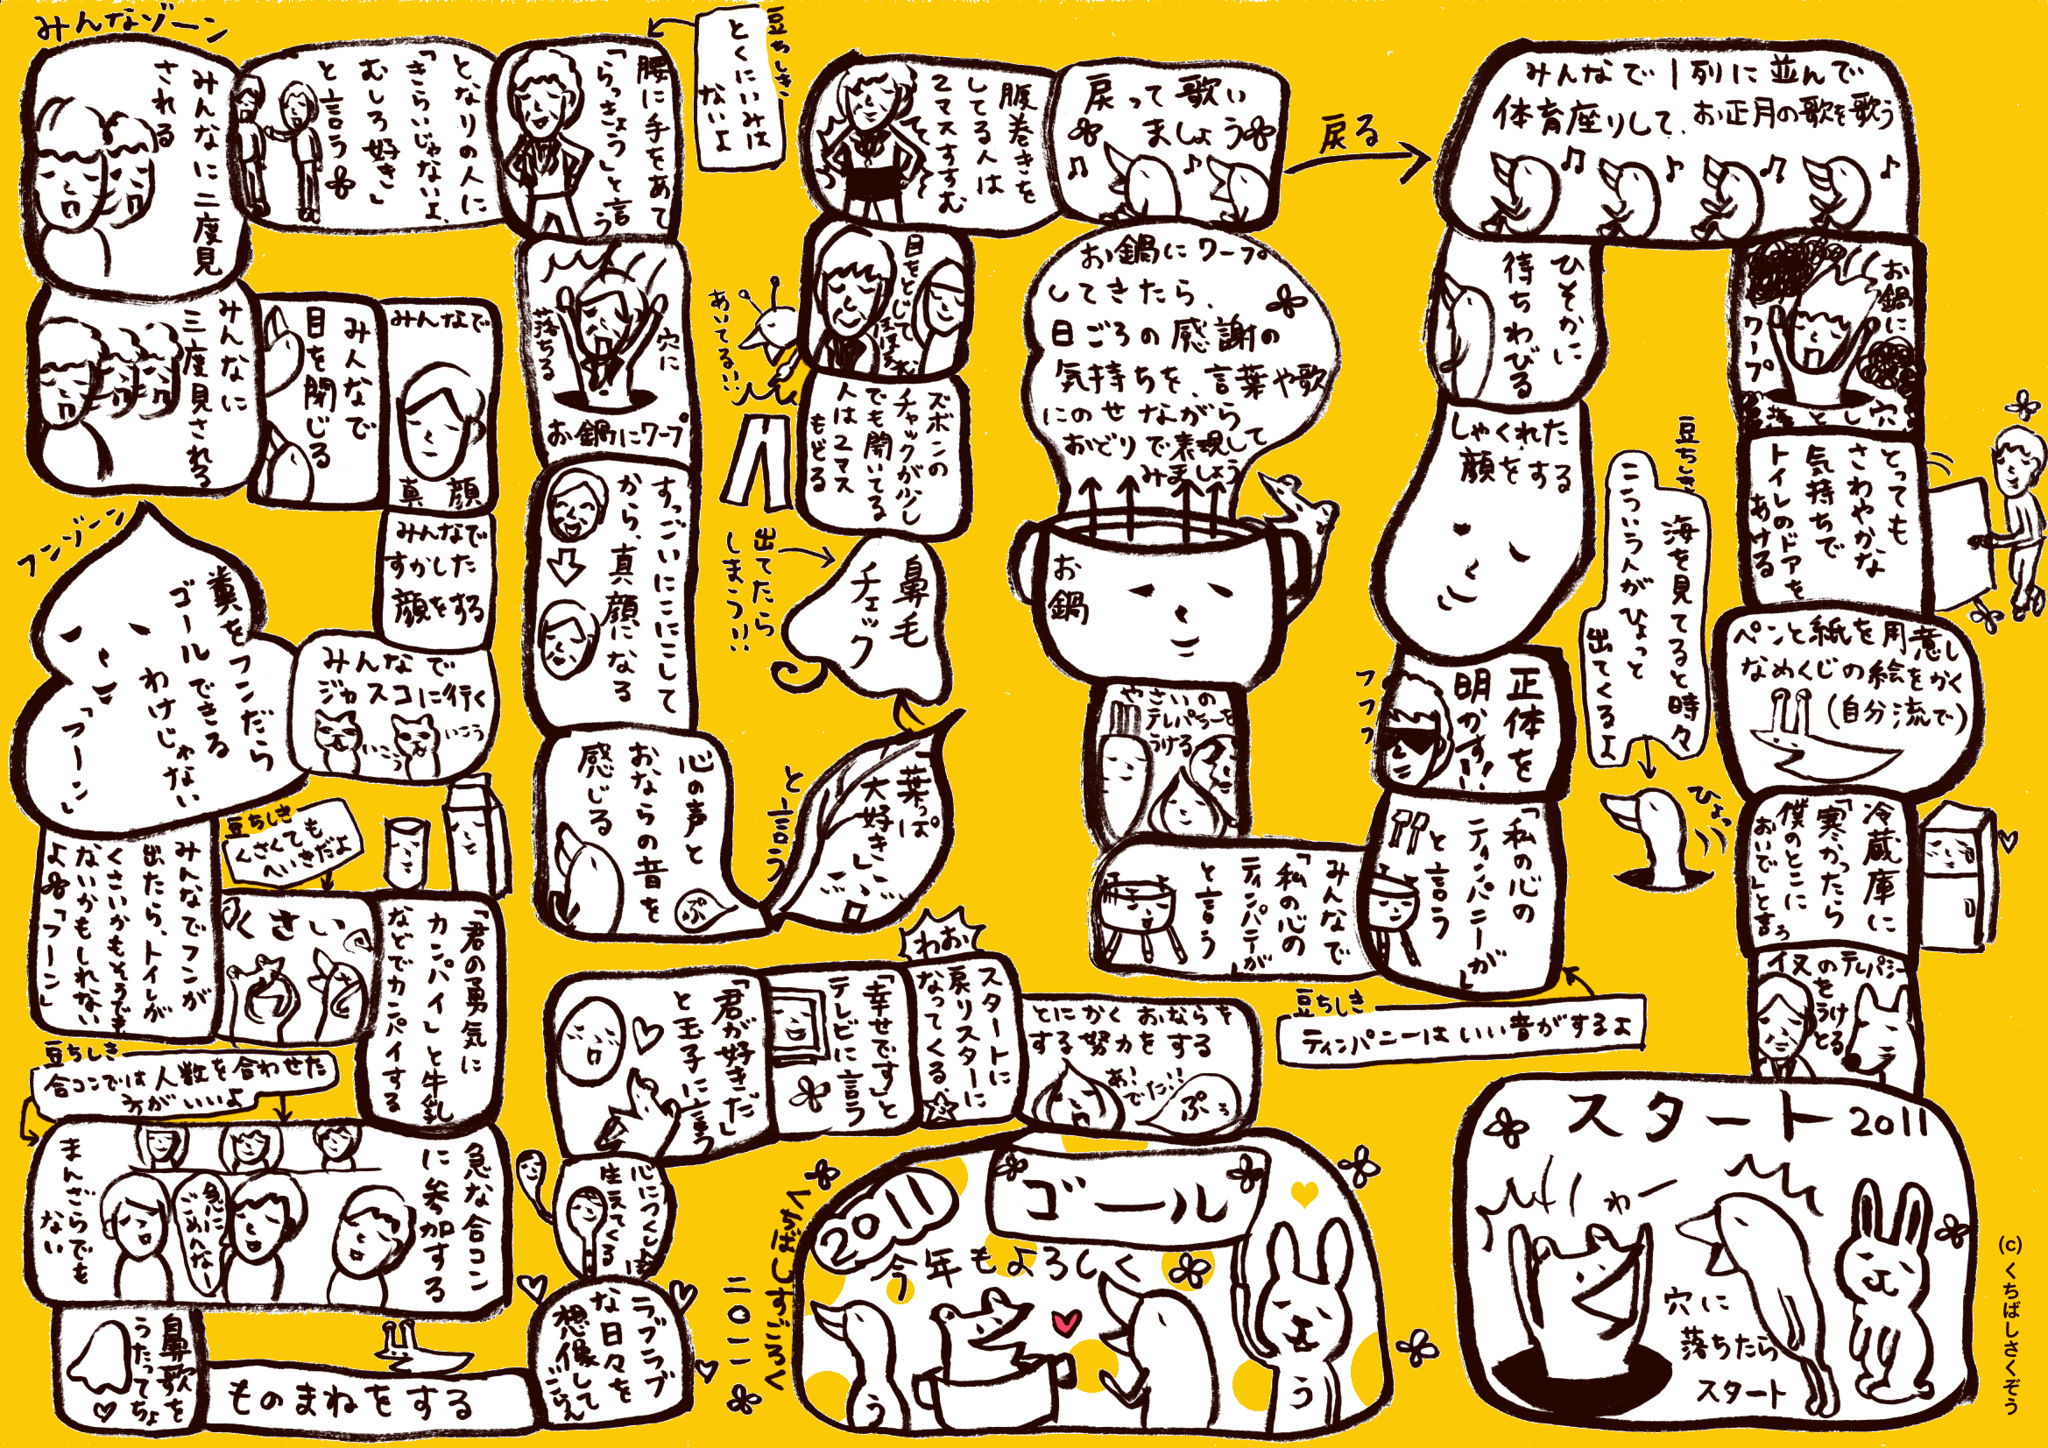 スタート 2011
わー
穴に
落ちたら
スタート
イヌのテレパシー
をうける
冷蔵庫に
「寒かったら
僕のとこに
おいで」と言う
ペンと紙を用意し
なめくじの絵をかく
(自分流で)
とっても
さわやかな
気持ちで
トイレのドアを
あける
お鍋に
ワープ
落とし穴
みんなで1列に並んで
体育座りして、お正月の歌を歌う
ひそかに
待ちわびる
しゃくれた
顔をする
正体を
明かす!!
フフフ
「私の心の
ティンパニーが」
と言う
豆ちしき
ティンパニーはいい音がするよ
豆ちしき
海を見てると時々
こういう人がひょっと
出てくるよ
ひょっ
みんなで
「私の心の
ティンパニーが」
と言う
やさいの
テレパシーを
うける
お鍋
お鍋にワープ
してきたら、
日ごろの感謝の
気持ちを、言葉や歌
にのせながら
おどりで表現して
みましょう
戻って歌い
ましょう
戻る
腹巻きを
してる人は
2マスすすむ
目をとじて
ほほえむ
ズボンの
チャックが少し
でも開いてる
人は2マス
もどる
あいてるい!!
鼻毛
チェック
出てたら
しまう!!
葉っぱ
大好きい
と言う
心の声と
おならの音を
感じる
ぷ
すっごいにこにこして
から、真顔になる
穴に
落ちる
お鍋にワープ
腰に手をあて
「らっきょう」と言う
豆ちしき
とくにいみは
ないよ
となりの人に
「きらいじゃないよ、
むしろ好き」
と言う
みんなゾーン
みんなに二度見
される
みんなに
三度見される
みんなで
目を閉じる
みんなで
真顔
みんなで
すかした
顔をする
みんなで
ジャスコに行く
いこう
いこう
フンゾーン
糞をフンだら
ゴールできる
わけじゃない
「フーン」
みんなでフンが
出たら、トイレが
くさいかもそうでも
ないかもしれない
よ「フーン」
くさい
豆ちしき
くさくても
へいきだよ
「君の勇気に
カンパイ」と牛乳
などでカンパイする
豆ちしき
合コンでは人数を合わせた
方がいいよ
急な合コン
に参加する
まんざらでも
ない
急に
ごめんなー
鼻歌を
うたってちょ
ものまねをする
ラブラブ
な日々を
想像して
ごらん
心につくしが
生えてくる
「君が好きだ」
と玉子に言う
「幸せです」と
テレビに言う
スタートに
戻りスタートに
なってくる
わお
とにかくおならを
する努力をする
あ!
でた!!
ぷぅ
ゴール
2011
今年もよろしく
う
う
くちばしすごろく
二〇一一
(c)くちばしさくぞう